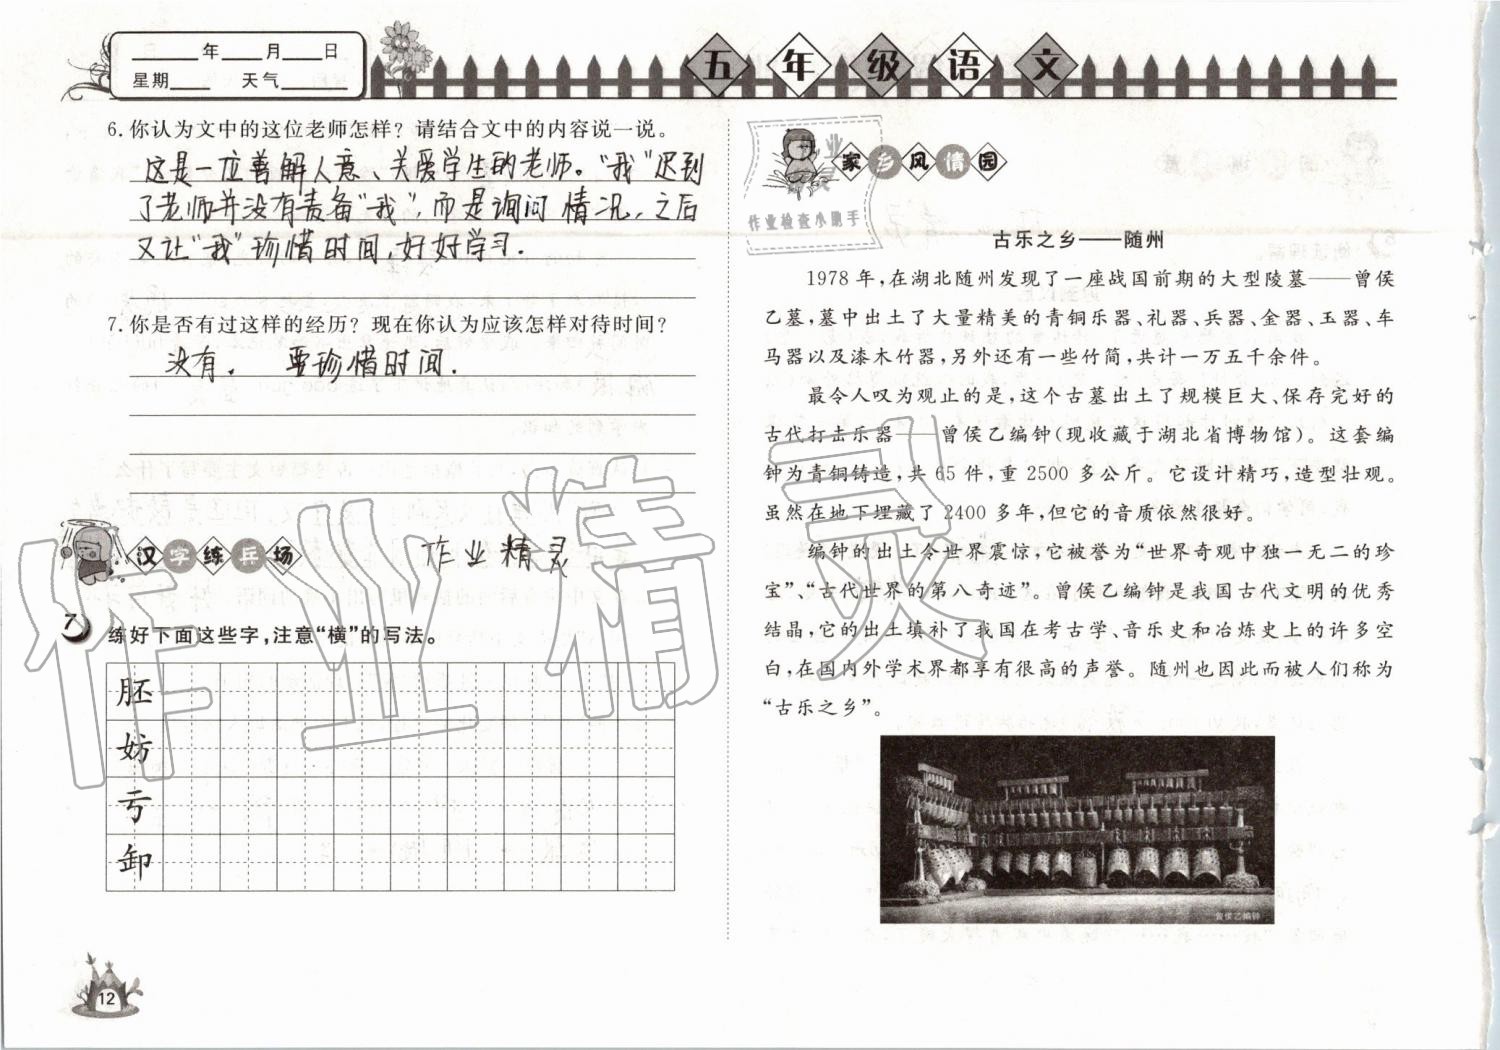 ____年____月____日
星期____ 天气______
五年级语文
6. 你认为文中的这位老师怎样？请结合文中的内容说一说。
这是一位善解人意、关爱学生的老师。“我”迟到
了老师并没有责备“我”，而是询问情况，之后
又让“我”珍惜时间，好好学习.
7. 你是否有过这样的经历？现在你认为应该怎样对待时间？
没有. 要珍惜时间.
汉字练兵场
作业精灵
7
练好下面这些字，注意“横”的写法。
胚
妨
亏
卸
12
作业检查小助手
家乡风情园
古乐之乡——随州
1978 年，在湖北随州发现了一座战国前期的大型陵墓——曾侯
乙墓，墓中出土了大量精美的青铜乐器、礼器、兵器、金器、玉器、车
马器以及漆木竹器，另外还有一些竹简，共计一万五千余件。
最令人叹为观止的是，这个古墓出土了规模巨大、保存完好的
古代打击乐器——曾侯乙编钟（现收藏于湖北省博物馆）。这套编
钟为青铜铸造，共 65 件，重 2500 多公斤。它设计精巧，造型壮观。
虽然在地下埋藏了 2400 多年，但它的音质依然很好。
编钟的出土令世界震惊，它被誉为“世界奇观中独一无二的珍
宝”、“古代世界的第八奇迹”。曾侯乙编钟是我国古代文明的优秀
结晶，它的出土填补了我国在考古学、音乐史和冶炼史上的许多空
白，在国内外学术界都享有很高的声誉。随州也因此而被人们称为
“古乐之乡”。
曾侯乙编钟
作业精灵